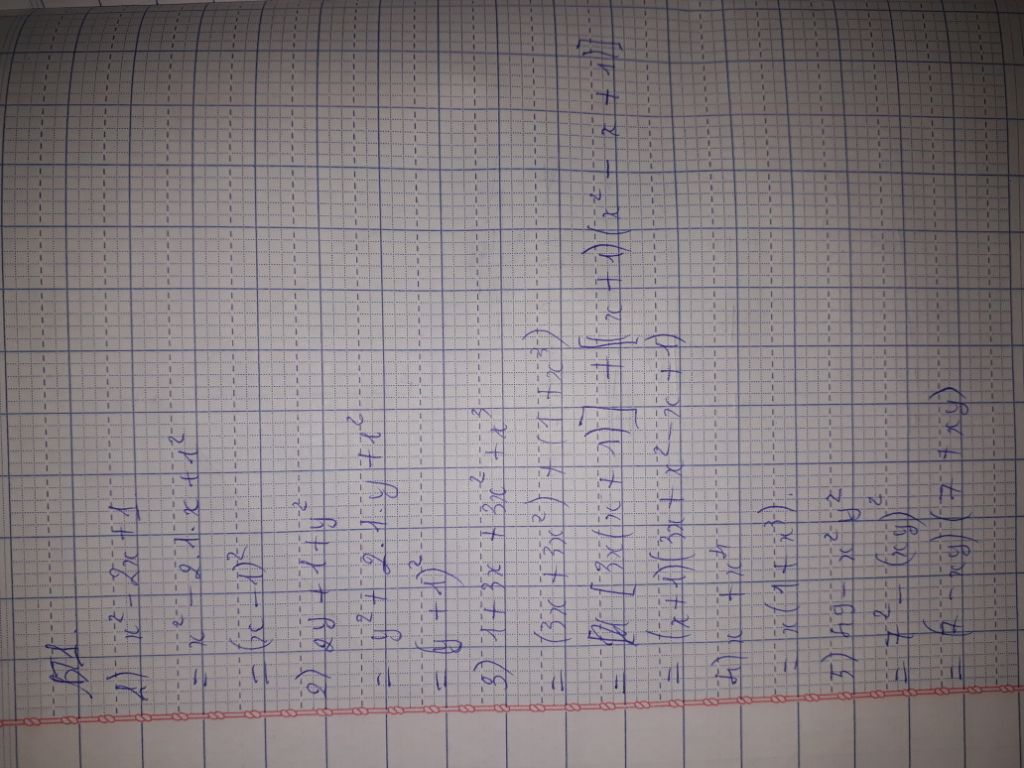 BT1.
1) x² - 2x + 1
= x² - 2.1.x + 1²
= (x - 1)²
2) 2y + 1 + y²
= y² + 2.1.y + 1²
= (y + 1)²
3) 1 + 3x + 3x² + x³
= (3x + 3x²) + (1 + x³)
= [3x(x + 1)] + [(x + 1)(x² - x + 1)]
= (x + 1)(3x + x² - x + 1)
4) x + x⁴
= x(1 + x³).
5) 49 - x²y²
= 7² - (xy)²
= (7 - xy)(7 + xy)